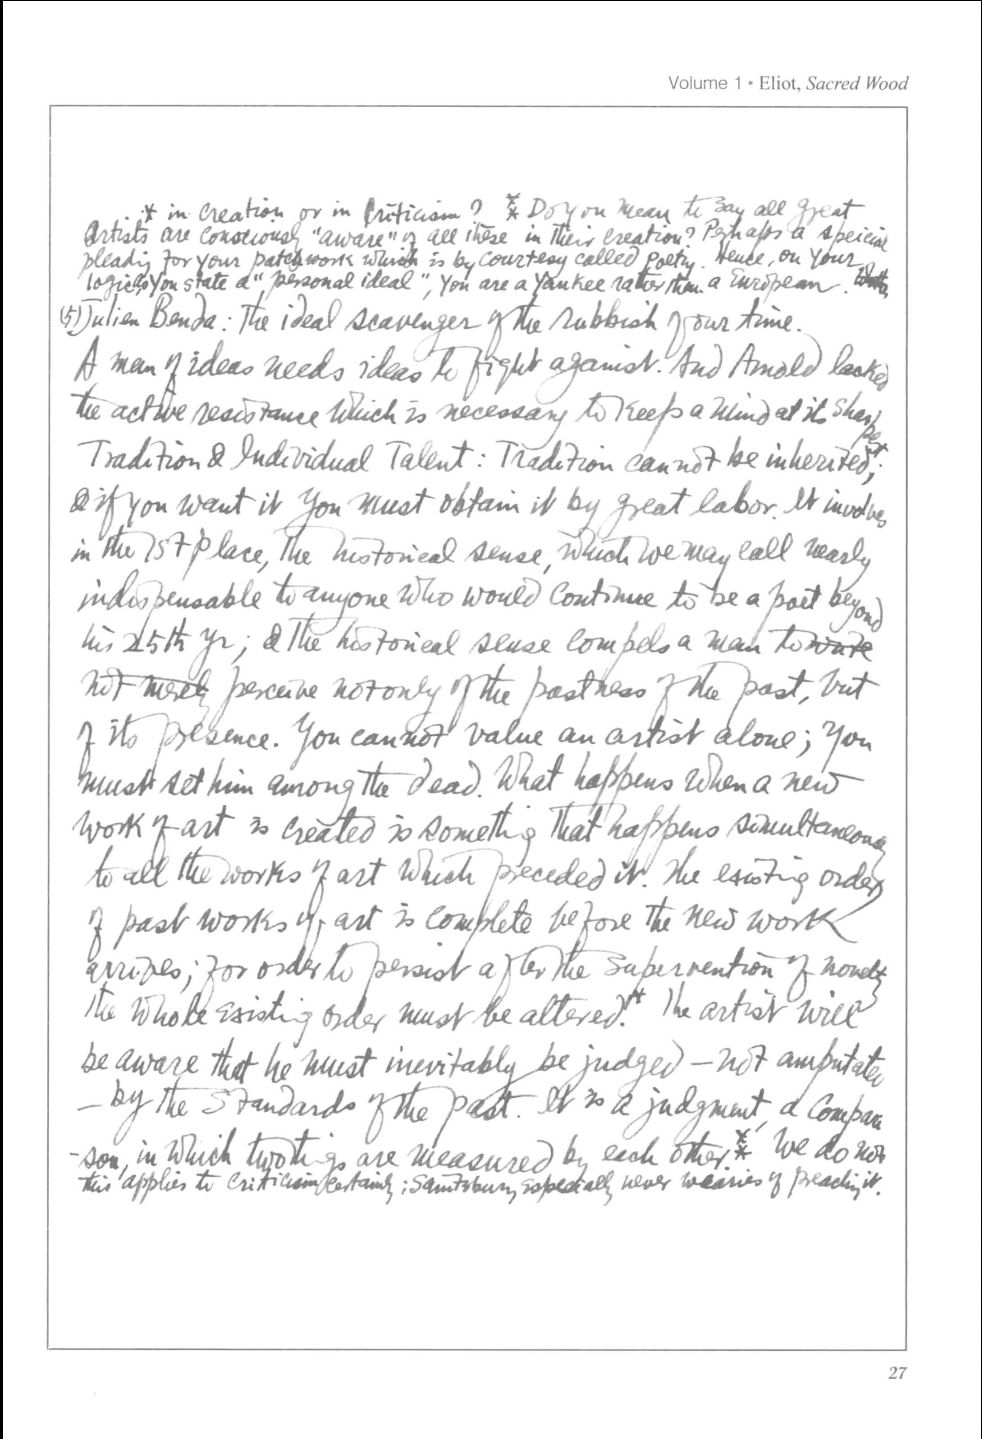 Volume 1 • Eliot, Sacred Wood
* in creation or in criticism? ** Do you mean to say all great
artists are consciously "aware" of all these in their creation? Perhaps a speicial
pleadig for your patchwork which is by courtesy called poetry. Hence, on your
logics, you state a "personal ideal", you are a Yankee rather than a European.
(5) Julien Benda: The ideal scavenger of the rubbish of our time.
A man of ideas needs ideas to fight against. And Arnold lacked
the active resistance which is necessary to keep a mind at its sharpest.
Tradition & Individual Talent: Tradition cannot be inherited;
& if you want it you must obtain it by great labor. It involves
in the 1st place, the historical sense, which we may call nearly
indispensable to anyone who would continue to be a poet beyond
his 25th yr; & the historical sense compels a man to write
not merely perceive not only of the pastness of the past, but
of its presence. You cannot value an artist alone; you
must set him among the dead. What happens when a new
work of art is created is somethig that happens simultaneously
to all the works of art which preceded it. The existing order
of past works of art is complete before the new work
arrives; for order to persist after the supervention of novelty
the whole existing order must be altered.* The artist will
be aware that he must inevitably be judged – not amputated
– by the standards of the past. It is a judgment, a compari
-son, in which two tings are measured by each other.** We do not
this applies to criticism certainly; Saintsbury especially never wearies of preachig it.
27